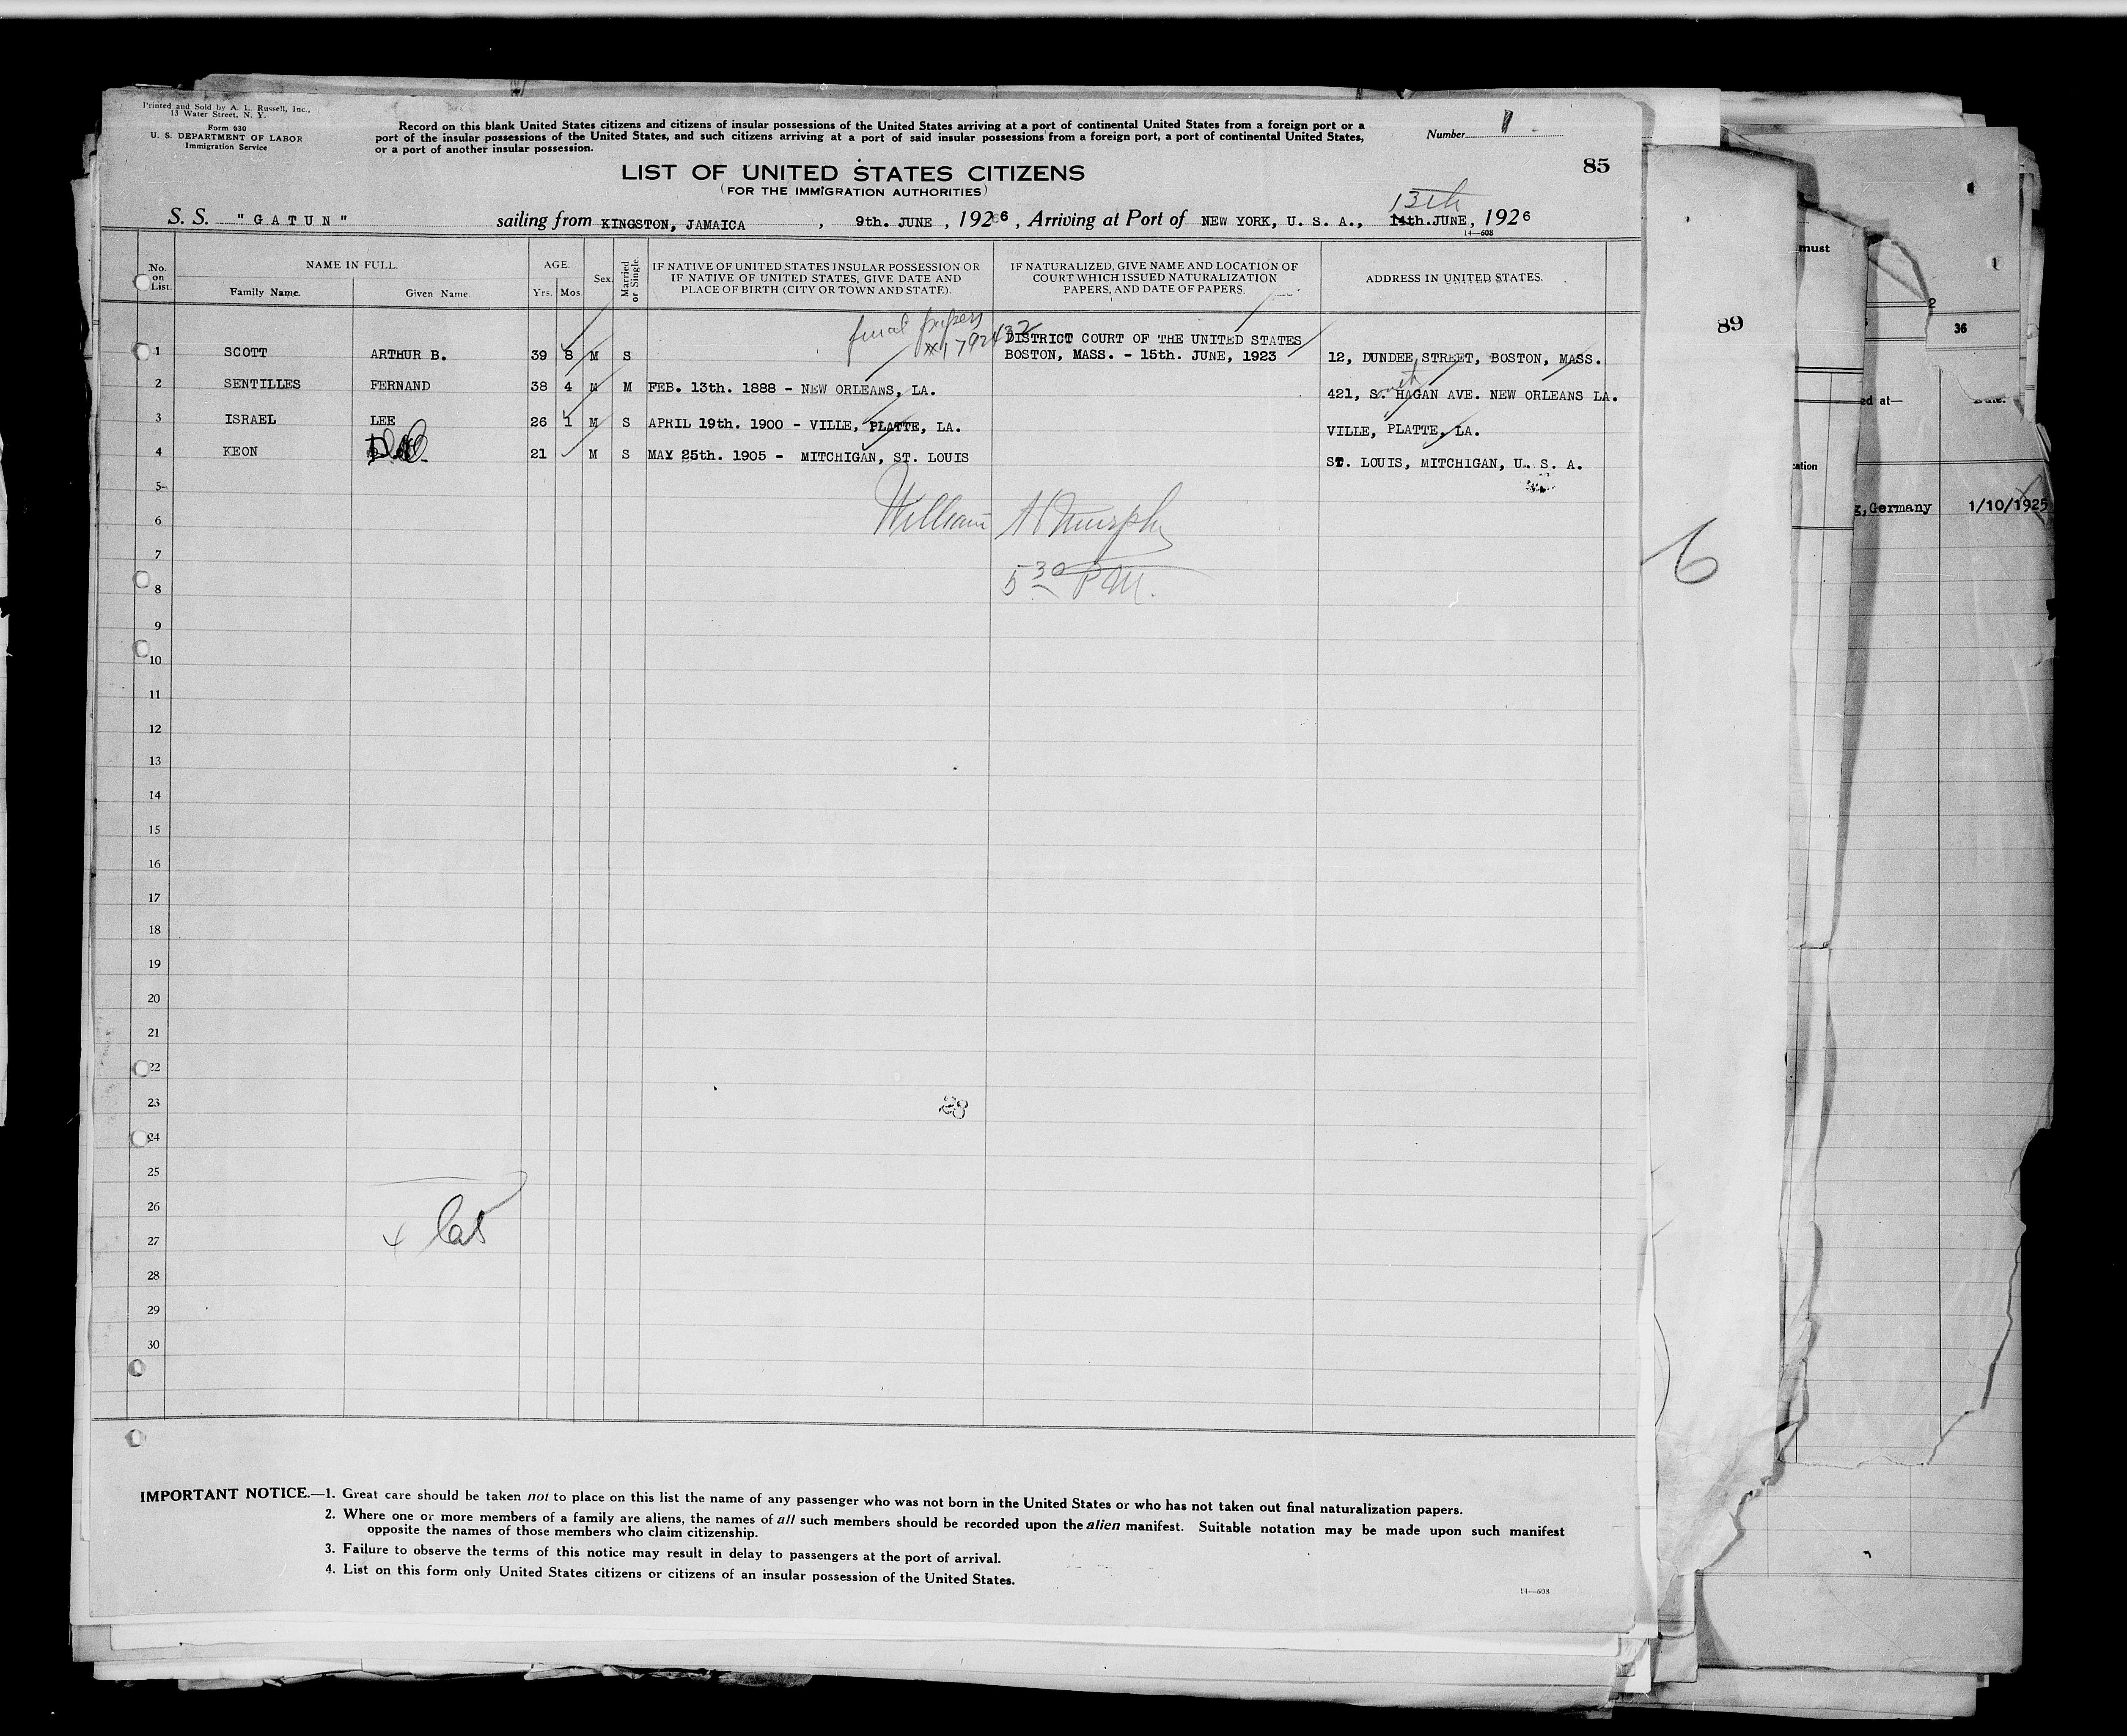 Printed and Sold by A. L. Russell, Inc.,
13 Water Street, N. Y.
Form 630
U. S. DEPARTMENT OF LABOR
Immigration Service
Record on this blank United States citizens and citizens of insular possessions of the United States arriving at a port of continental United States from a foreign port or a
port of the insular possessions of the United States, and such citizens arriving at a port of said insular possessions from a foreign port, a port of continental United States,
or a port of another insular possession.
Number 1
85
LIST OF UNITED STATES CITIZENS
(FOR THE IMMIGRATION AUTHORITIES)
13th
S. S. "GATUN" sailing from KINGSTON, JAMAICA, 9th. JUNE, 1926, Arriving at Port of NEW YORK, U. S. A., 14th. JUNE, 1926
14—608
No. on List.
NAME IN FULL.
Family Name.
Given Name.
AGE.
Yrs.
Mos.
Sex.
Married or Single.
IF NATIVE OF UNITED STATES INSULAR POSSESSION OR
IF NATIVE OF UNITED STATES, GIVE DATE AND
PLACE OF BIRTH (CITY OR TOWN AND STATE).
IF NATURALIZED, GIVE NAME AND LOCATION OF
COURT WHICH ISSUED NATURALIZATION
PAPERS, AND DATE OF PAPERS.
ADDRESS IN UNITED STATES.
final papers
DISTRICT COURT OF THE UNITED STATES
1 SCOTT ARTHUR B. 39 8 M S BOSTON, MASS. - 15th. JUNE, 1923 12, DUNDEE STREET, BOSTON, MASS.
2 SENTILLES FERNAND 38 4 M M FEB. 13th. 1888 - NEW ORLEANS, LA. 421, S. HAGAN AVE. NEW ORLEANS LA.
3 ISRAEL LEE 26 1 M S APRIL 19th. 1900 - VILLE, PLATTE, LA. VILLE, PLATTE, LA.
4 KEON 21 M S MAY 25th. 1905 - MITCHIGAN, ST. LOUIS ST. LOUIS, MITCHIGAN, U. S. A.
5
6 William H Murphy
7
5 30 P.M.
8
9
10
11
12
13
14
15
16
17
18
19
20
21
22
23
24
25
26
27
28
29
30
IMPORTANT NOTICE.—1. Great care should be taken not to place on this list the name of any passenger who was not born in the United States or who has not taken out final naturalization papers.
2. Where one or more members of a family are aliens, the names of all such members should be recorded upon the alien manifest. Suitable notation may be made upon such manifest
opposite the names of those members who claim citizenship.
3. Failure to observe the terms of this notice may result in delay to passengers at the port of arrival.
4. List on this form only United States citizens or citizens of an insular possession of the United States.
14—608
89
6
must
2
36
ed at—
,Germany 1/10/1925